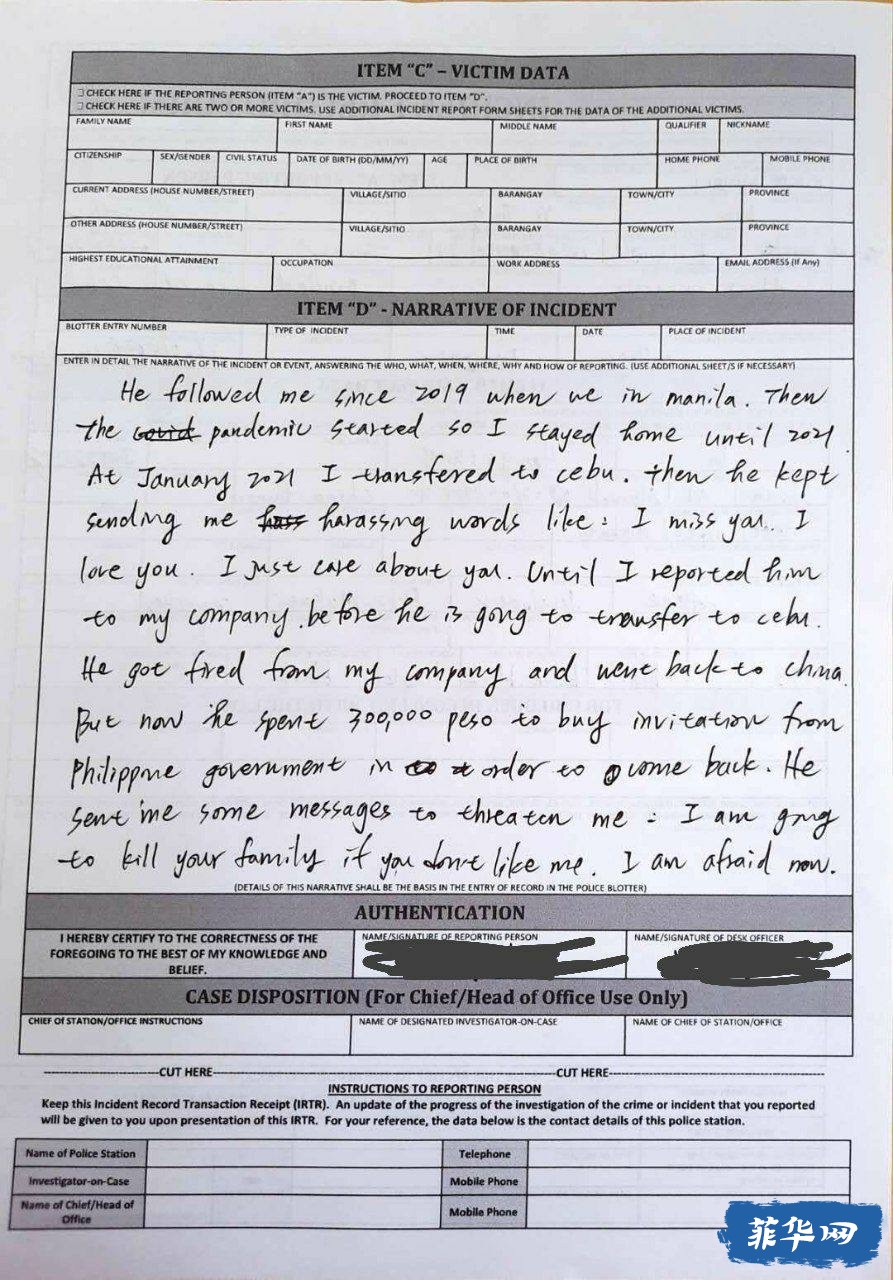 ITEM "C" – VICTIM DATA
CHECK HERE IF THE REPORTING PERSON (ITEM "A") IS THE VICTIM. PROCEED TO ITEM "D".
CHECK HERE IF THERE ARE TWO OR MORE VICTIMS. USE ADDITIONAL INCIDENT REPORT FORM SHEETS FOR THE DATA OF THE ADDITIONAL VICTIMS.
FAMILY NAME FIRST NAME MIDDLE NAME QUALIFIER NICKNAME
CITIZENSHIP SEX/GENDER CIVIL STATUS DATE OF BIRTH (DD/MM/YY) AGE PLACE OF BIRTH HOME PHONE MOBILE PHONE
CURRENT ADDRESS (HOUSE NUMBER/STREET) VILLAGE/SITIO BARANGAY TOWN/CITY PROVINCE
OTHER ADDRESS (HOUSE NUMBER/STREET) VILLAGE/SITIO BARANGAY TOWN/CITY PROVINCE
HIGHEST EDUCATIONAL ATTAINMENT OCCUPATION WORK ADDRESS EMAIL ADDRESS (If Any)
ITEM "D" - NARRATIVE OF INCIDENT
BLOTTER ENTRY NUMBER TYPE OF INCIDENT TIME DATE PLACE OF INCIDENT
ENTER IN DETAIL THE NARRATIVE OF THE INCIDENT OR EVENT, ANSWERING THE WHO, WHAT, WHEN, WHERE, WHY AND HOW OF REPORTING. (USE ADDITIONAL SHEET/S IF NECESSARY)
He followed me since 2019 when we in manila. Then
the covid pandemic started so I stayed home until 2021
At January 2021 I transferred to cebu. then he kept
sending me hass harassing words like: I miss you. I
love you. I just care about you. Until I reported him
to my company. before he is gong to transfer to cebu.
He got fired from my company and went back to china.
But now he spent 300,000 peso to buy invitation from
Philippine government in order to come back. He
sent me some messages to threaten me: I am gong
to kill your family if you don't like me. I am afraid now.
(DETAILS OF THIS NARRATIVE SHALL BE THE BASIS IN THE ENTRY OF RECORD IN THE POLICE BLOTTER)
AUTHENTICATION
I HEREBY CERTIFY TO THE CORRECTNESS OF THE
FOREGOING TO THE BEST OF MY KNOWLEDGE AND
BELIEF.
NAME/SIGNATURE OF REPORTING PERSON NAME/SIGNATURE OF DESK OFFICER
CASE DISPOSITION (For Chief/Head of Office Use Only)
CHIEF OF STATION/OFFICE INSTRUCTIONS NAME OF DESIGNATED INVESTIGATOR-ON-CASE NAME OF CHIEF OF STATION/OFFICE
CUT HERE CUT HERE
INSTRUCTIONS TO REPORTING PERSON
Keep this Incident Record Transaction Receipt (IRTR). An update of the progress of the investigation of the crime or incident that you reported
will be given to you upon presentation of this IRTR. For your reference, the data below is the contact details of this police station.
Name of Police Station Telephone
Investigator-on-Case Mobile Phone
Name of Chief/Head of
Office Mobile Phone
菲华网